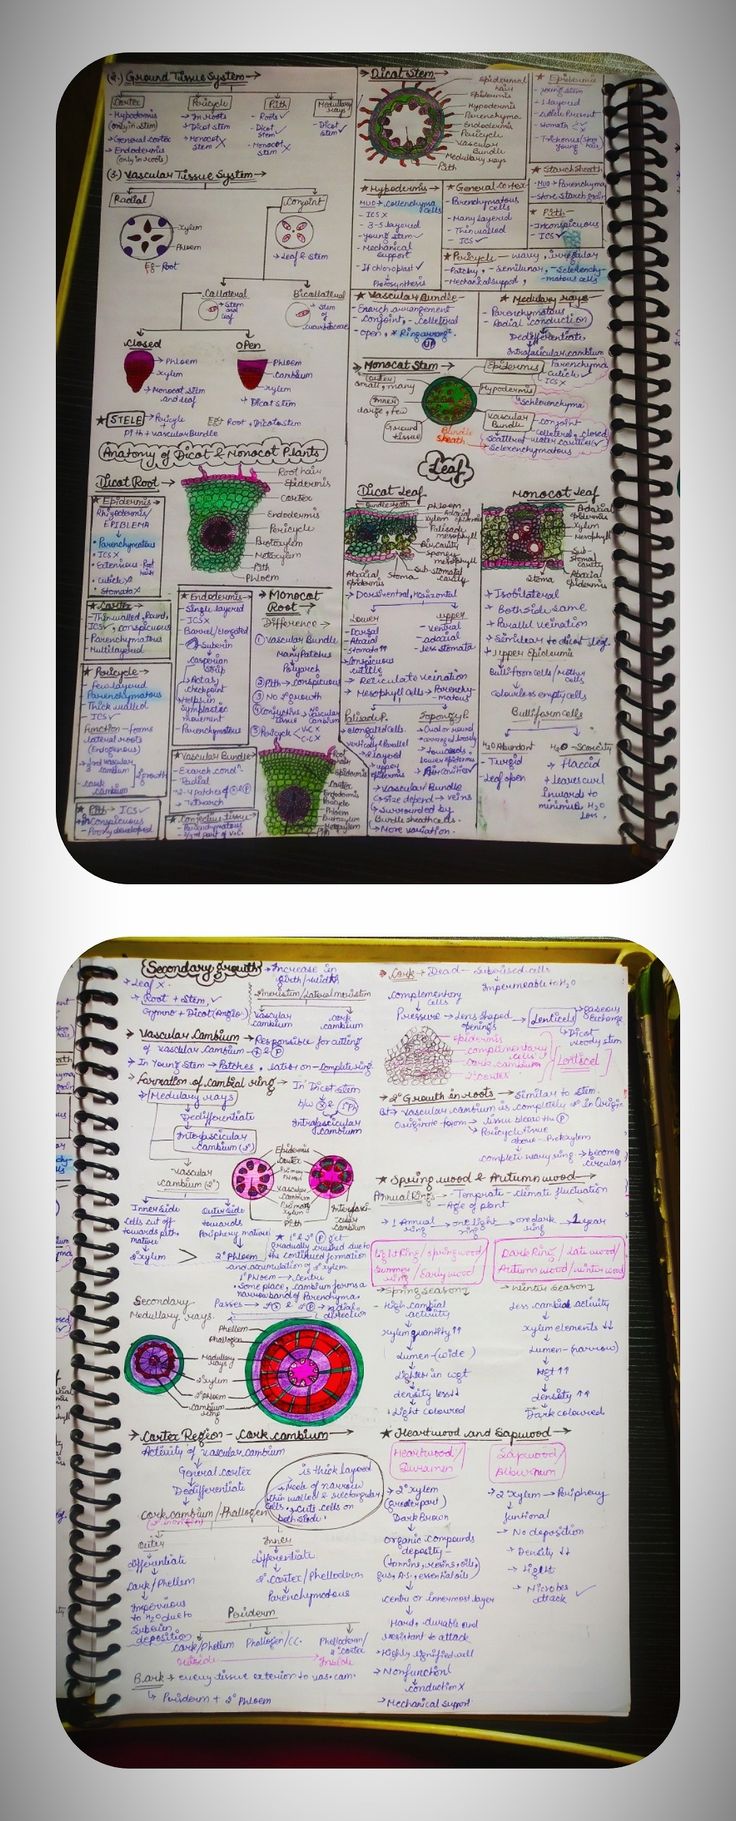 (2.) Ground Tissue System →
Cortex
- Hypodermis
(only in stem)
→ General cortex
→ Endodermis
(only in roots)
Pericycle
→ In Roots
→ Dicot stem
→ Monocot
stem X
Pith
- Roots ✓
- Dicot
stem ✓
- Monocot
stem X
Medullary
rays
→ Dicot
stem ✓
(3.) Vascular Tissue System →
Radial
Xylem
Phloem
Eg- Root
Conjoint
→ Leaf & stem
Collateral
→ Stem
and
leaf
Bicollateral
→ Stem
of
Closed
→ Phloem
→ Xylem
→ Monocot stem
and leaf
Open
Phloem
cambium
Xylem
→ Dicot stem
★ STELE → Pericycle +
Pith + vascular Bundle
Eg: Root + Dicot stem
Anatomy of Dicot & Monocot Plants
Dicot Root →
Root hair
Epidermis
Cortex
Endodermis
Pericycle
Protoxylem
Metaxylem
Pith
Phloem
★ Epidermis →
Rhizodermis/
EPIBLEMA
• Parenchymatous
• ICS X
• Extensive Root
hair
• Cuticle X
• Stomata X
★ Cortex →
- Thin walled, Round,
ICS ✓, conspicuous
- Parenchymatous
- Multilayered
★ Pericycle →
- Few layered
Parenchymatous
- Thick walled
- ICS ✓
Function - forms
lateral roots
(Endogenous)
cork cambium
2° growth
★ Pith → ICS ✓
→ Inconspicuous
- Poorly developed
★ Endodermis →
- Single layered
- ICS X
Barrel/Elongated
Suberin
casparian
strip
movement
- Parenchymatous
★ Vascular Bundle →
- Exarch condn.
- Radial
- 2-4 patches of X & P
→ Tetrarch
★ Conjective tissue →
- Parenchymatous
★ Monocot
Root →
Difference →
① Vascular Bundle
Many Patches
Polyarch
② Pith → conspicuous
③ No 2° growth
Root
hair
Epidermis
Cortex
Endodermis
Pericycle
Phloem
Protoxylem
Metaxylem
Pith
Dicot Stem →
Epidermal
hair
Epidermis
Hypodermis
Parenchyma
Endodermis
Pericycle
Vascular
Bundle
Medullary rays
Pith
★ Epidermis
- Young stem
- 1 layered
- Cuticle Present
- Stomata
★ Starch Sheath
→ Parenchyma
- Store starch grain
★ Pith →
- Inconspicuous
- ICS ✓
★ Hypodermis →
MUO → Collenchyma
cells
- ICS X
- 3-5 layered
- young stem ✓
- Mechanical
support
- If chloroplast ✓
→ Photosynthesis
★ General cortex -
Parenchymatous
cells
- Many layered
- Thin walled
- ICS ✓
★ Pericycle → wavy, irregular
- Patchy, - Semilunar, - Sclerenchy-
- Mechanical support, matous cells
★ Vascular Bundle →
- Endarch arrangement
- conjoint, - collateral
- Open, ★ Ring arrangt
★ Medullary rays →
- Parenchymatous
- Radial conduction
Dedifferentiate
Intrafascicular cambium
★ Monocot Stem →
Outer
small, many
Inner
large, few
Ground
tissue
Epidermis
Parenchyma
Cuticle ✓
ICS X
Hypodermis
Sclerenchyma
Bundle
sheath
Vascular
Bundle
conjoint
collateral, closed
Scattered water cavities ✓
Sclerenchymatous
Leaf
Dicot Leaf
Bundle sheath
Phloem
Adaxial
epidermis
Xylem
Palisade
mesophyll
Air cavity
Spongy
mesophyll
Sub-stomatal
cavity
Abaxial
Epidermis
Stoma
→ Dorsiventral, Horizontal
Lower
- Dorsal
- Abaxial
Stomata ↑↑
→ conspicuous
cuticle
Upper
- Ventral
- adaxial
- less stomata
→ Reticulate venation
→ Mesophyll cells → Parenchy-
matous
Palisade P.
- elongated cells
- vertically & Parallel
- 2 layered
→ upper
epidermis
Spongy P.
→ Oval or round
→ arranged loosely
→ towards
lower epidermis
→ Air cavities
→ Vascular Bundle
→ size depend → veins
→ Surrounded by
Bundle sheath cells.
→ More variation.
Monocot Leaf
Adaxial
epidermis
Xylem
Mesophyll
Sub-
stomatal
cavity
Abaxial
Epidermis
Stoma
→ Isobilateral
→ Both side same
→ Parallel Venation
→ Similar to dicot leaf
★ Upper Epidermis
Bulliform cells/Mother
cells
→ colourless empty cells
Bulliform cells
H₂O Abundant
→ Turgid
Leaf open
H₂O - Scarcity
→ Flaccid
→ Leaves curl
Inwards to
minimise H₂O
loss.
Secondary growth → Increase in
girth/width
→ Leaf X
→ Root + Stem, ✓
Gymno + Dicot (Angio)
Meristem/Lateral meristem
Vascular
cambium
cork
cambium
→ Vascular Cambium → Responsible for cutting
of vascular cambium - X & P
→ In Young Stem → Patches, later on - complete ring.
→ Formation of cambial ring →
→ Medullary rays
Dedifferentiate
Interfascicular
cambium (2°)
→ Vascular
cambium (2°)
In Dicot Stem
b/w X & 1°Ph
Intrafascicular
cambium
Epidermis
Cortex
Primary
Phloem
Vascular
cambium
Primary
Xylem
Pith
Interfasci-
cular cambium
Inner side
cells cut off
towards pith,
mature
2° Xylem
>
Outer side
towards
Periphery mature
2° Phloem
★ 1° & 2° P get
gradually crushed due to
the continued formation
and accumulation of 2° xylem
1° Phloem → Centre
• Some place, cambium forms a
narrow band of Parenchyma.
Secondary
Medullary rays.
Passes → 2°X & 2°P → radial
direction
Phellem
Phellogen
Medullary
rays
2° Xylem
2° Phloem
cambium
ring
→ Cortex Region - Cork cambium →
Activity of vascular cambium
General cortex
Dedifferentiate
Cork cambium/Phellogen
→ is thick layered
→ Made of narrow
thin walled & rectangular
cells, → Cuts cells on
both sides.
Outer
differentiate
Cork/Phellem
Impervious
to H₂O due to
Suberin
deposition
Inner
differentiate
2° Cortex/Phelloderm
Parenchymatous
Periderm
Cork/Phellem
outside
Phellogen/C.C.
Phelloderm/
2° cortex
Inside
Bark → every tissue exterior to vas. cam.
↳ Periderm + 2° Phloem
→ Cork → Dead → Suberised cells
Impermeable to H₂O
complementary
cells
Pressure → Lens shaped
openings
Lenticels
Gaseous
exchange
Dicot
woody stem
Epidermis
complimentary
cells
cork cambium
2° cortex
Lenticel
→ 2° Growth in roots → Similar to stem
Vascular cambium is completely 2° in Origin
Originate from → tissue below the P
→ Pericycle tissue
above → Protoxylem
complete wavy ring → become
circular
★ Spring wood & Autumn wood →
Annual Rings → Temperate - climate fluctuation
→ Age of plant
→ 1 Annual
ring → one light
ring → one dark
ring → 1 year
Light Ring / Spring wood/
Summer
ring / Early wood
Dark Ring / Late wood/
Autumn wood / Winter wood
→ Spring season
- High cambial
activity
Xylem quantity ↑↑
Lumen - (wide)
Lighter in wgt
density less ↓↓
Light coloured
→ Winter season
Less cambial activity
xylem elements ↓↓
Lumen - (narrow)
wgt ↑↑
density ↑↑
Dark coloured
★ Heartwood and Sapwood →
Heartwood/
Duramen
→ 2° Xylem
(greater part)
Dark Brown
Organic compounds
deposity -
(tannins, resins, oils,
gums, A.S., essential oils)
centre or innermost layer
Hard, durable and
resistant to attack
→ Highly lignified wall
→ Nonfunction
conduction X
→ Mechanical support
Sapwood/
Alburnum
→ 2° Xylem → Periphery
funtional
→ No deposition
→ Density ↓↓
→ Light
→ Microbes
attack ✓